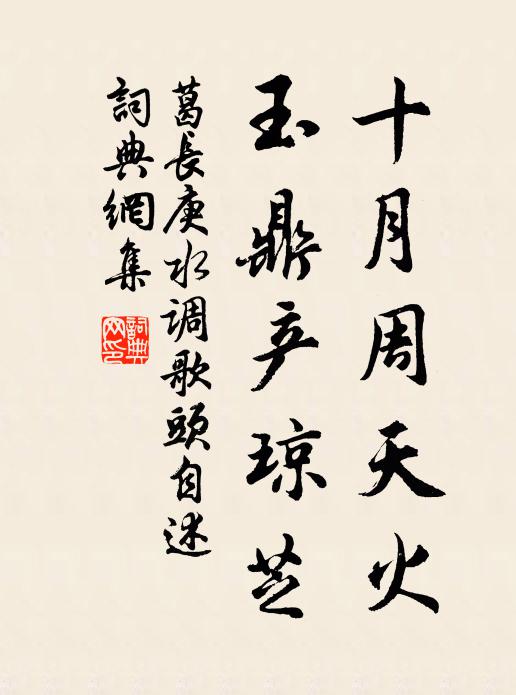 十月周天火
玉鼎产琼芝
葛長庚水调歌頭自述
詞典網集
詞典网印